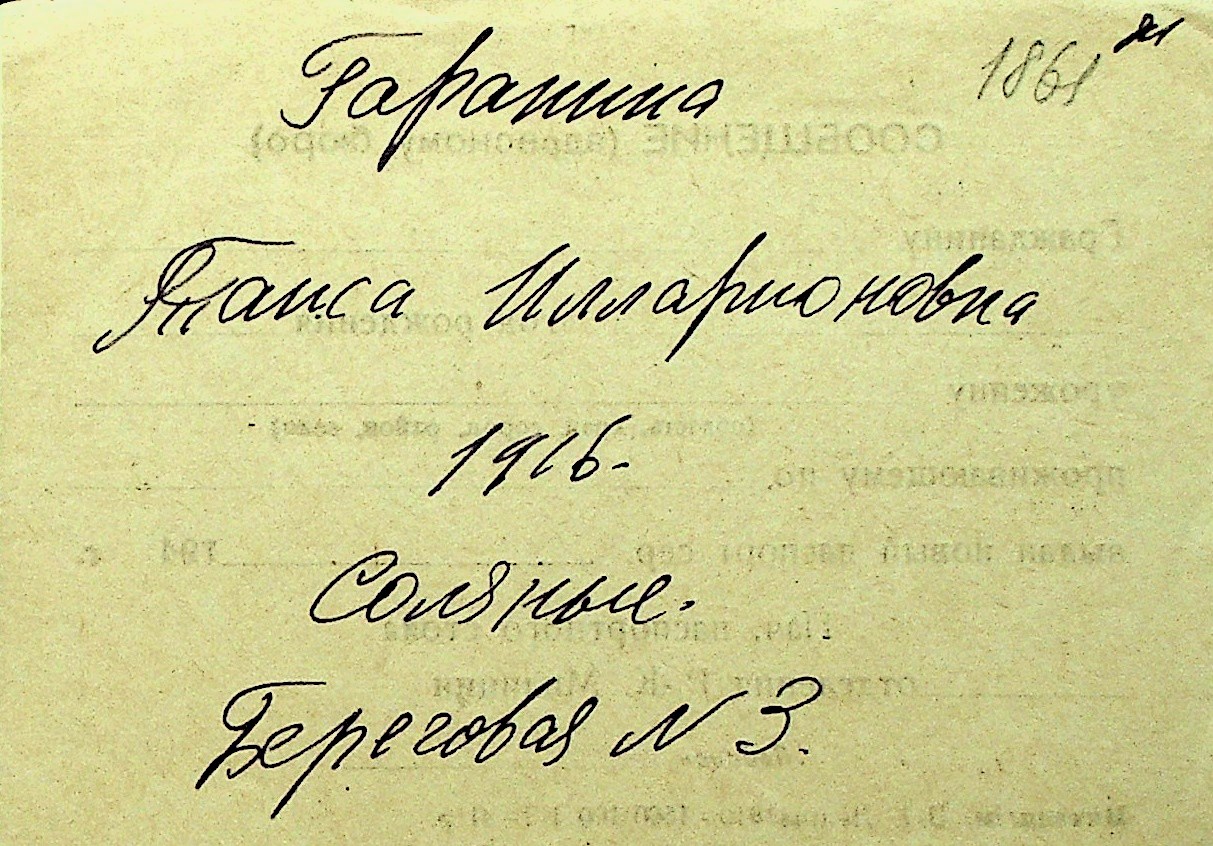 1861
Гаранина
Таиса Илларионовна
1916-
Соляные.
Береговая N 3.